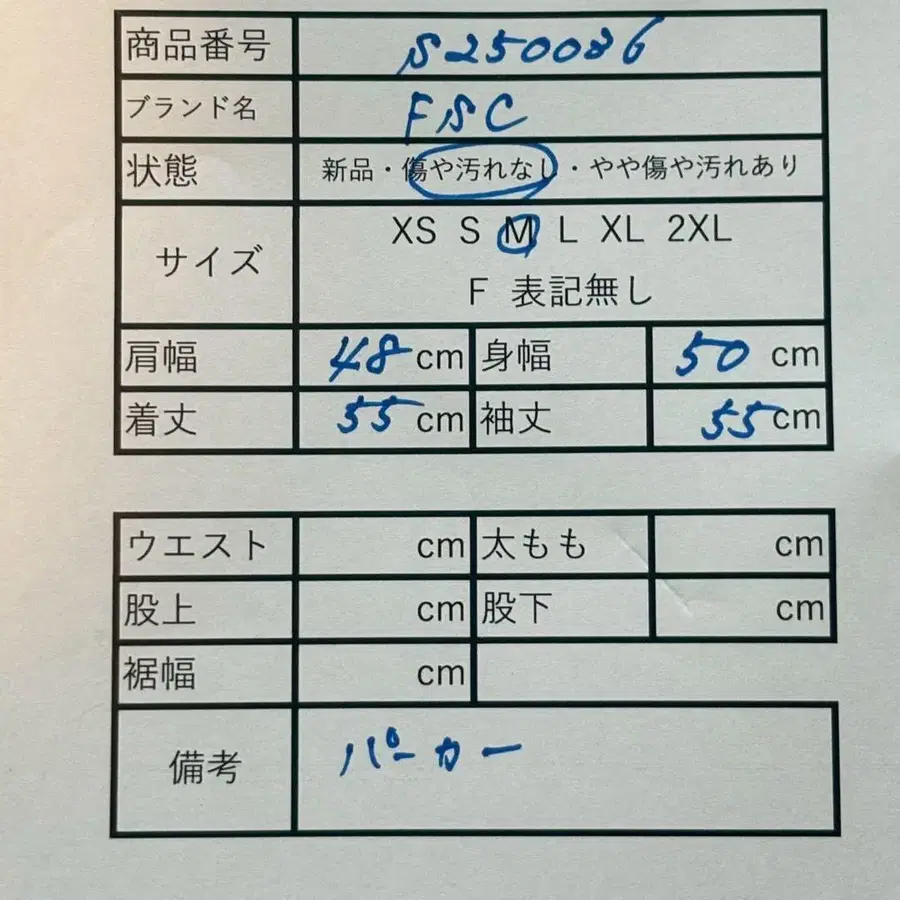 商品番号 S250086
ブランド名 FSC
状態 新品・傷や汚れなし・やや傷や汚れあり
サイズ XS S M L XL 2XL
F 表記無し
肩幅 48 cm 身幅 50 cm
着丈 55 cm 袖丈 55 cm
ウエスト cm 太もも cm
股上 cm 股下 cm
裾幅 cm
備考 パーカー